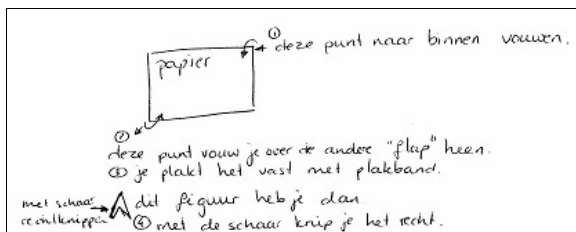 ① deze punt naar binnen vouwen.
papier
②
deze punt vouw je over de andere "flap" heen.
③ je plakt het vast met plakband.
met schaar rechtknippen
dit figuur heb je dan.
④ met de schaar knip je het recht.